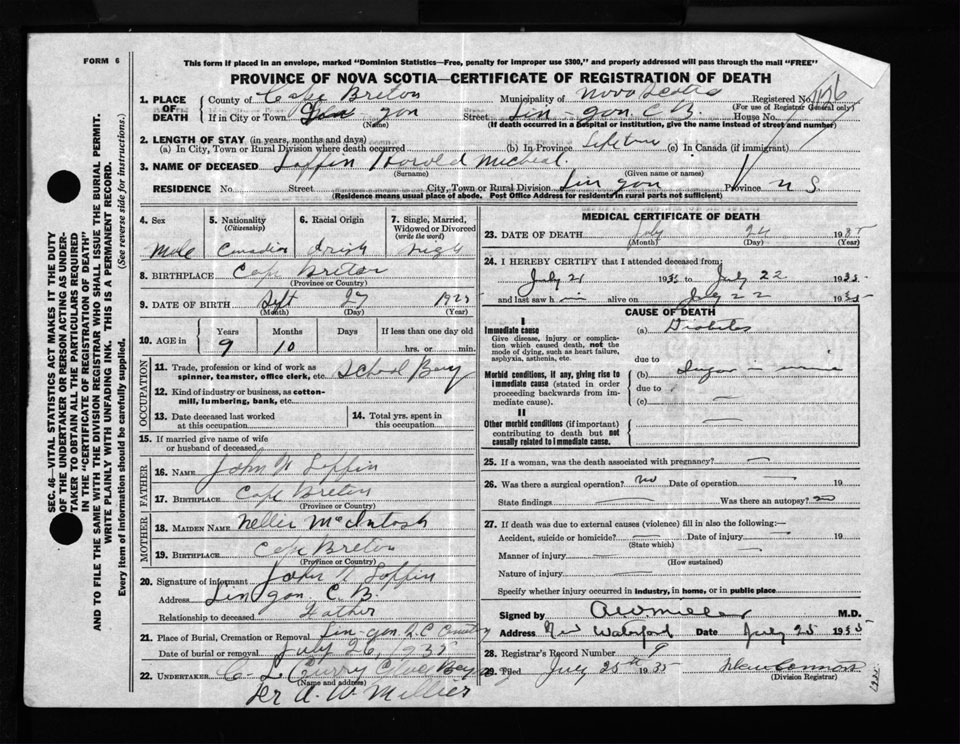 FORM 6
This form if placed in an envelope, marked "Dominion Statistics—Free, penalty for improper use $300," and properly addressed will pass through the mail "FREE"
PROVINCE OF NOVA SCOTIA—CERTIFICATE OF REGISTRATION OF DEATH
1. PLACE OF DEATH
County of Cape Breton Municipality of Nova Scotia Registered No.
(For use of Registrar General only)
If in City or Town gon Street Lin-gon, C.B. House No.
(Name) (If death occurred in a hospital or institution, give the name instead of street and number)
2. LENGTH OF STAY (in years, months and days)
(a) In City, Town or Rural Division where death occurred (b) In Province Lifetime (c) In Canada (if immigrant)
3. NAME OF DECEASED Loffin Harold Micheal
(Surname) (Given name or names)
RESIDENCE No. Street City, Town or Rural Division Lin gon Province N S.
(Residence means usual place of abode. Post Office Address for residents in rural parts not sufficient)
4. Sex Male
5. Nationality (Citizenship) Canadian
6. Racial Origin Irish
7. Single, Married, Widowed or Divorced (write the word) Single
8. BIRTHPLACE Cape Breton
(Province or Country)
9. DATE OF BIRTH Sept 27 1925
(Month) (Day) (Year)
10. AGE in Years Months Days If less than one day old
9 10 hrs. or min.
OCCUPATION
11. Trade, profession or kind of work as spinner, teamster, office clerk, etc. School Boy
12. Kind of industry or business, as cotton-mill, lumbering, bank, etc.
13. Date deceased last worked at this occupation
14. Total yrs. spent in this occupation
15. If married give name of wife or husband of deceased
FATHER
16. NAME John N Loffin
17. BIRTHPLACE Cape Breton
(Province or Country)
MOTHER
18. MAIDEN NAME Nellie McIntosh
19. BIRTHPLACE Cape Breton
(Province or Country)
20. Signature of informant John N Loffin
Address Lin gon C.B.
Relationship to deceased Father
21. Place of Burial, Cremation or Removal Lin-gon R.C Cemetery
Date of burial or removal July 26, 1935
22. UNDERTAKER C. L. Curry Glace Bay
(Name and address)
Per A. W. Millier
MEDICAL CERTIFICATE OF DEATH
23. DATE OF DEATH July 24 1935
(Month) (Day) (Year)
24. I HEREBY CERTIFY that I attended deceased from:
July 21 1935 to July 22 1935
and last saw him alive on July 22 1935
CAUSE OF DEATH
I
Immediate cause (a) Diabetes
Give disease, injury or complication which caused death, not the mode of dying, such as heart failure, asphyxia, asthenia, etc.
due to
Morbid conditions, if any, giving rise to immediate cause (stated in order proceeding backwards from immediate cause).
(b) Sugar in urine
due to
(c)
II
Other morbid conditions (if important) contributing to death but not causally related to immediate cause.
25. If a woman, was the death associated with pregnancy?
26. Was there a surgical operation? no Date of operation 19
State findings Was there an autopsy? no
27. If death was due to external causes (violence) fill in also the following:—
Accident, suicide or homicide? Date of injury 19
(State which)
Manner of injury
(How sustained)
Nature of injury
Specify whether injury occurred in industry, in home, or in public place
Signed by A W Miller M.D.
Address New Waterford Date July 25 1935
28. Registrar's Record Number 9
29. Filed July 25th 1935
(Division Registrar)
SEC. 46—VITAL STATISTICS ACT MAKES IT THE DUTY OF THE UNDERTAKER OR PERSON ACTING AS UNDERTAKER TO OBTAIN ALL THE PARTICULARS REQUIRED IN THE "CERTIFICATE OF REGISTRATION OF DEATH" AND TO FILE THE SAME WITH THE DIVISION REGISTRAR WHO SHALL ISSUE THE BURIAL PERMIT.
WRITE PLAINLY WITH UNFADING INK. THIS IS A PERMANENT RECORD.
Every item of information should be carefully supplied. (See reverse side for instructions.)